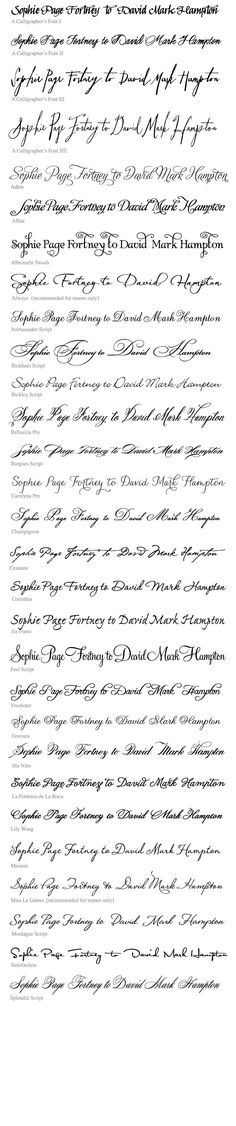 Sophie Page Fortney to David Mark Hampton
A Calligrapher's Font I
Sophie Page Fortney to David Mark Hampton
A Calligrapher's Font II
Sophie Page Fortney to David Mark Hampton
A Calligrapher's Font III
Sophie Page Fortney to David Mark Hampton
A Calligrapher's Font IIII
Sophie Page Fortney to David Mark Hampton
Adios
Sophie Page Fortney to David Mark Hampton
Affair
Sophie Page Fortney to David Mark Hampton
Albemarle Swash
Sophie Fortney to David Hampton
Always (recommended for names only)
Sophie Page Fortney to David Mark Hampton
Ambassador Script
Sophie Fortney to David Hampton
Bickham Script
Sophie Page Fortney to David Mark Hampton
Bickley Script
Sophie Page Fortney to David Mark Hampton
Belluccia Pro
Sophie Page Fortney to David Mark Hampton
Burgues Script
Sophie Page Fortney to David Mark Hampton
Carolyna Pro
Sophie Page Fortney to David Mark Hampton
Champignon
Sophie Page Fortney to David Mark Hampton
Cezanne
Sophie Page Fortney to David Mark Hampton
Corinthia
Sophie Page Fortney to David Mark Hampton
Ex Ponto
Sophie Page Fortney to David Mark Hampton
Feel Script
Sophie Page Fortney to David Mark Hampton
Freebooter
Sophie Page Fortney to David Mark Hampton
Gravura
Sophie Page Fortney to David Mark Hampton
His Nibs
Sophie Page Fortney to David Mark Hampton
La Portenia de La Boca
Sophie Page Fortney to David Mark Hampton
Lily Wang
Sophie Page Fortney to David Mark Hampton
Memoir
Sophie Page Fortney to David Mark Hampton
Miss Le Gatees (recommended for names only)
Sophie Page Fortney to David Mark Hampton
Montague Script
Sophie Page Fortney to David Mark Hampton
Satisfaction
Sophie Page Fortney to David Mark Hampton
Splendid Script